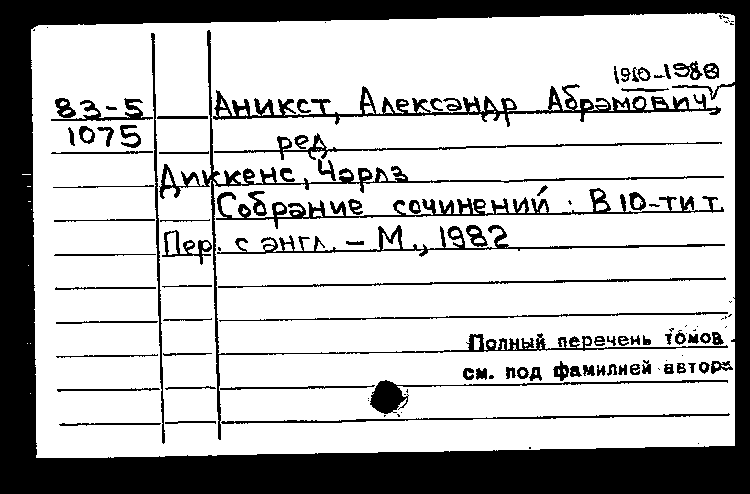 1910-1988
83-5 Аникст, Александр Абрамович,
1075 ред.
Диккенс, Чарлз
Собрание сочинений : В 10-ти т.
Пер. с англ. – М., 1982
Полный перечень томов
см. под фамилией автора